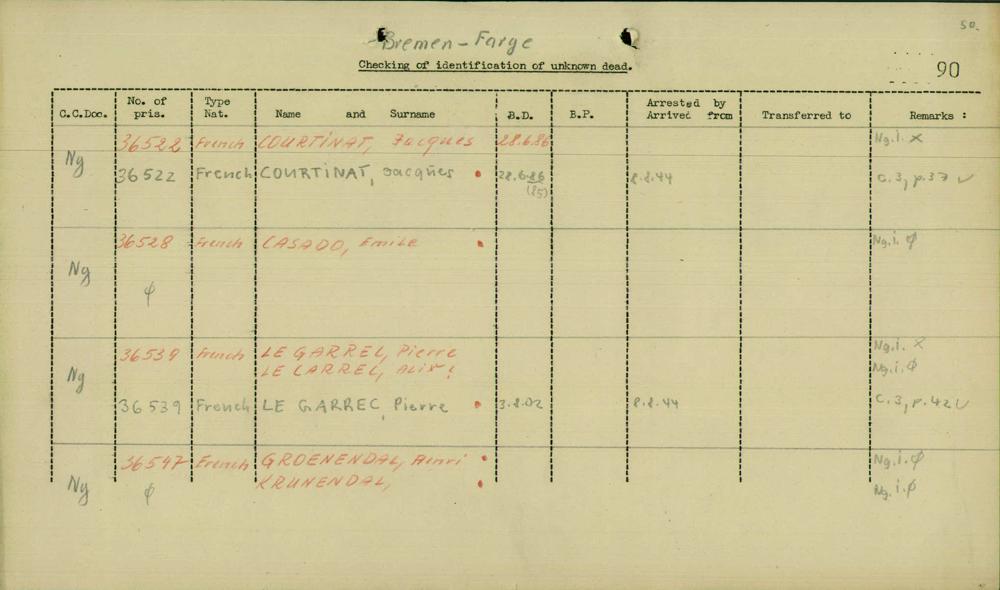 50.
Bremen - Farge
Checking of identification of unknown dead.
90
C.C.Doc. No. of pris. Type Nat. Name and Surname B.D. B.P. Arrested by Arrived from Transferred to Remarks :
36522 French COURTINAT, Jacques 28.6.86 Ng.i. x
Ng
36522 French COURTINAT, Jacques 28.6.86 8.8.44 C.3, p.37 ✓
(85)
36528 French CASADO, Emile Ng.i. ϕ
Ng
ϕ
36539 French LE GARREL, Pierre Ng.i. x
LE CARREL, Alix! Ng.i. ϕ
Ng
36539 French LE GARREC, Pierre 3.8.02 8.8.44 C.3, p.42 ✓
36547 French GROENENDAL, Henri Ng.i. ϕ
Ng ϕ KRUNENDAL, Ng.i. ϕ